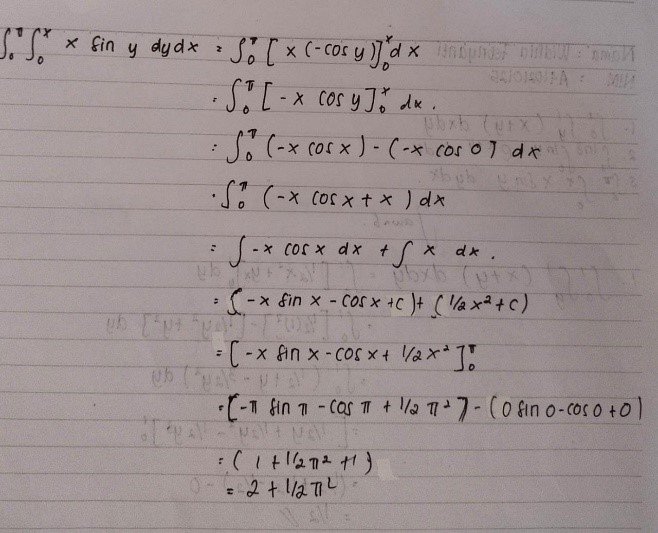 ∫₀^π ∫₀^x x sin y dy dx = ∫₀^π [x (-cos y)]₀^x dx
= ∫₀^π [-x cos y]₀^x dx.
= ∫₀^π (-x cos x) - (-x cos 0] dx
= ∫₀^π (-x cos x + x) dx
= ∫ -x cos x dx + ∫ x dx.
= (-x sin x - cos x + c) + (1/2 x² + c)
= [-x sin x - cos x + 1/2 x²]₀^π
= [-π sin π - cos π + 1/2 π²] - (0 sin 0 - cos 0 + 0)
= (1 + 1/2 π² + 1)
= 2 + 1/2 π²